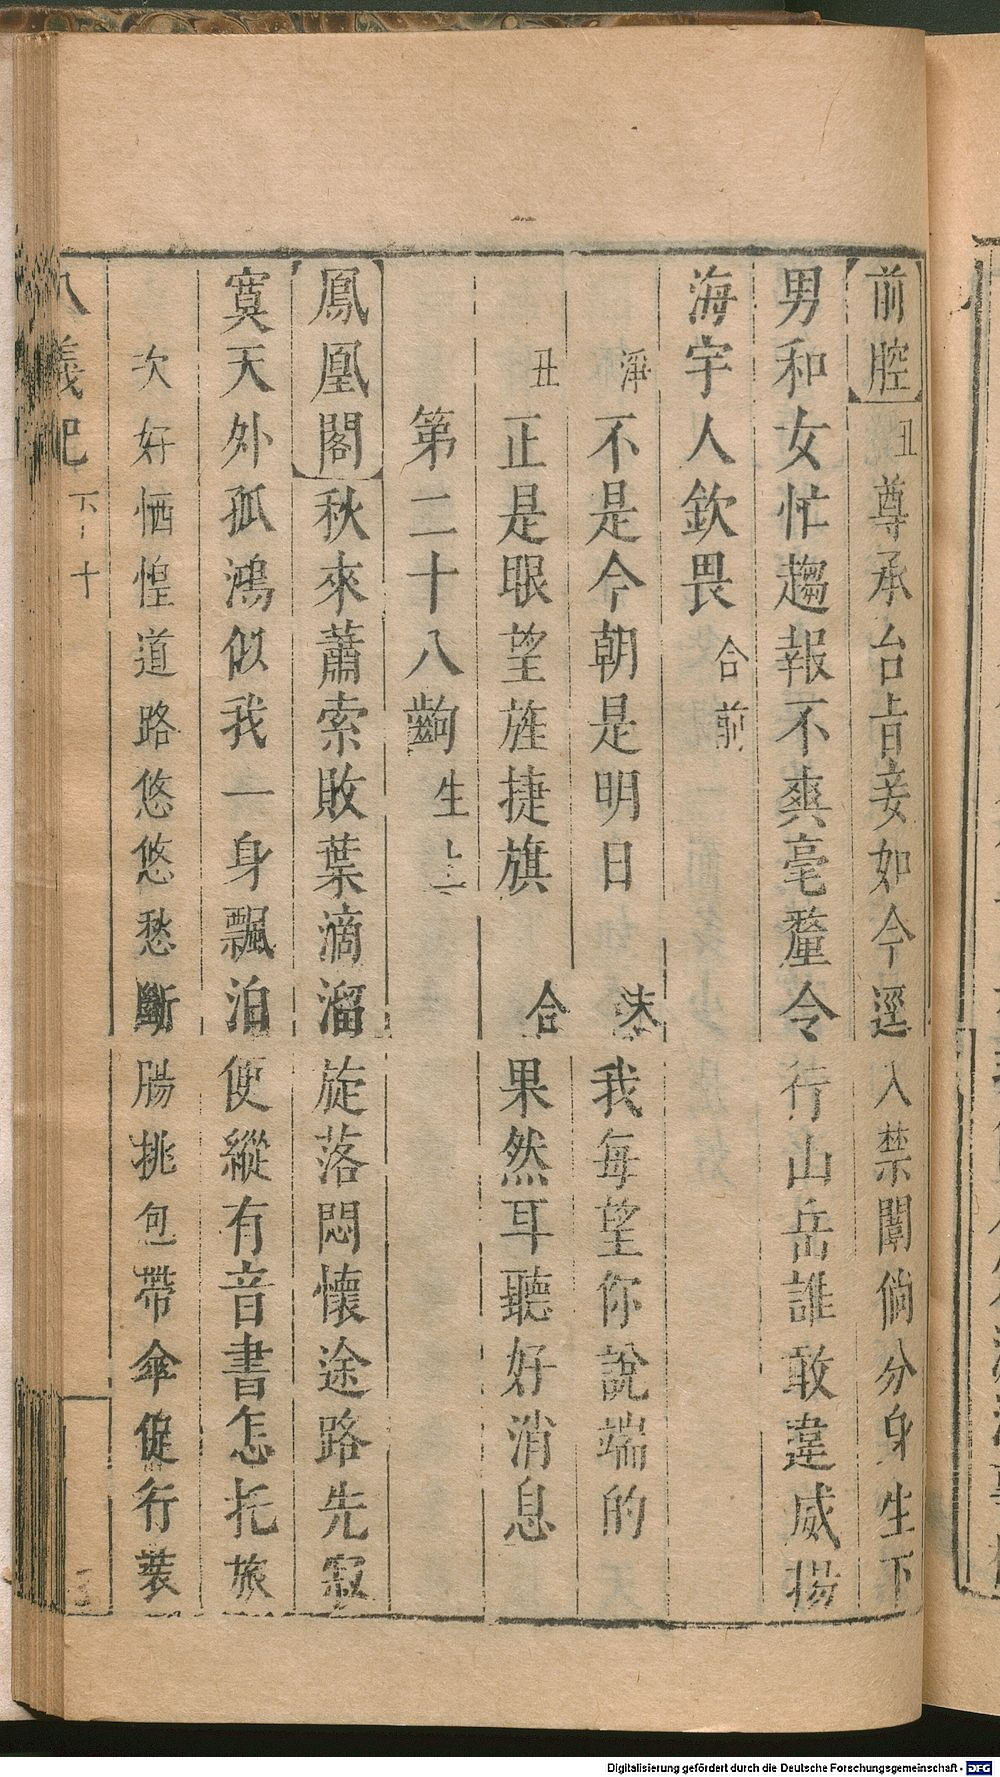 前腔丑尊承台旨妾如今逕入禁闈倘分身生下
男和女忙趨報不爽毫釐令行山岳誰敢違威揚
海宇人欽畏合前
淨不是今朝是明日 我每望你說端的
丑正是眼望旌捷旗合果然耳聽好消息
第二十八齣生上
鳳凰閣秋來蕭索敗葉滴溜旋落悶懷途路先寂
寞天外孤鴻似我一身飄泊便縱有音書怎托旅
次好恓惶道路悠悠愁斷腸挑包帶傘促行裝
八義記 下 十
Digitalisierung gefördert durch die Deutsche Forschungsgemeinschaft - DFG